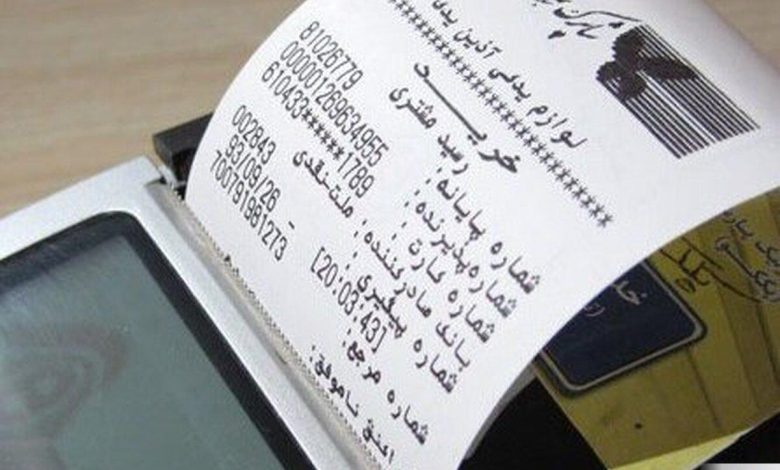 لوازم یدکی آذین یدک
********************************
خرید
رسید مشتری
شماره پایانه: 81026779
شماره پذیرنده: 000001269634955
شماره کارت: 610433******1789
بانک صادرکننده: ملت-نقدی
شماره پیگیری: 002843
[20:03:43] - 93/09/26
شماره مرجع: 700791981273